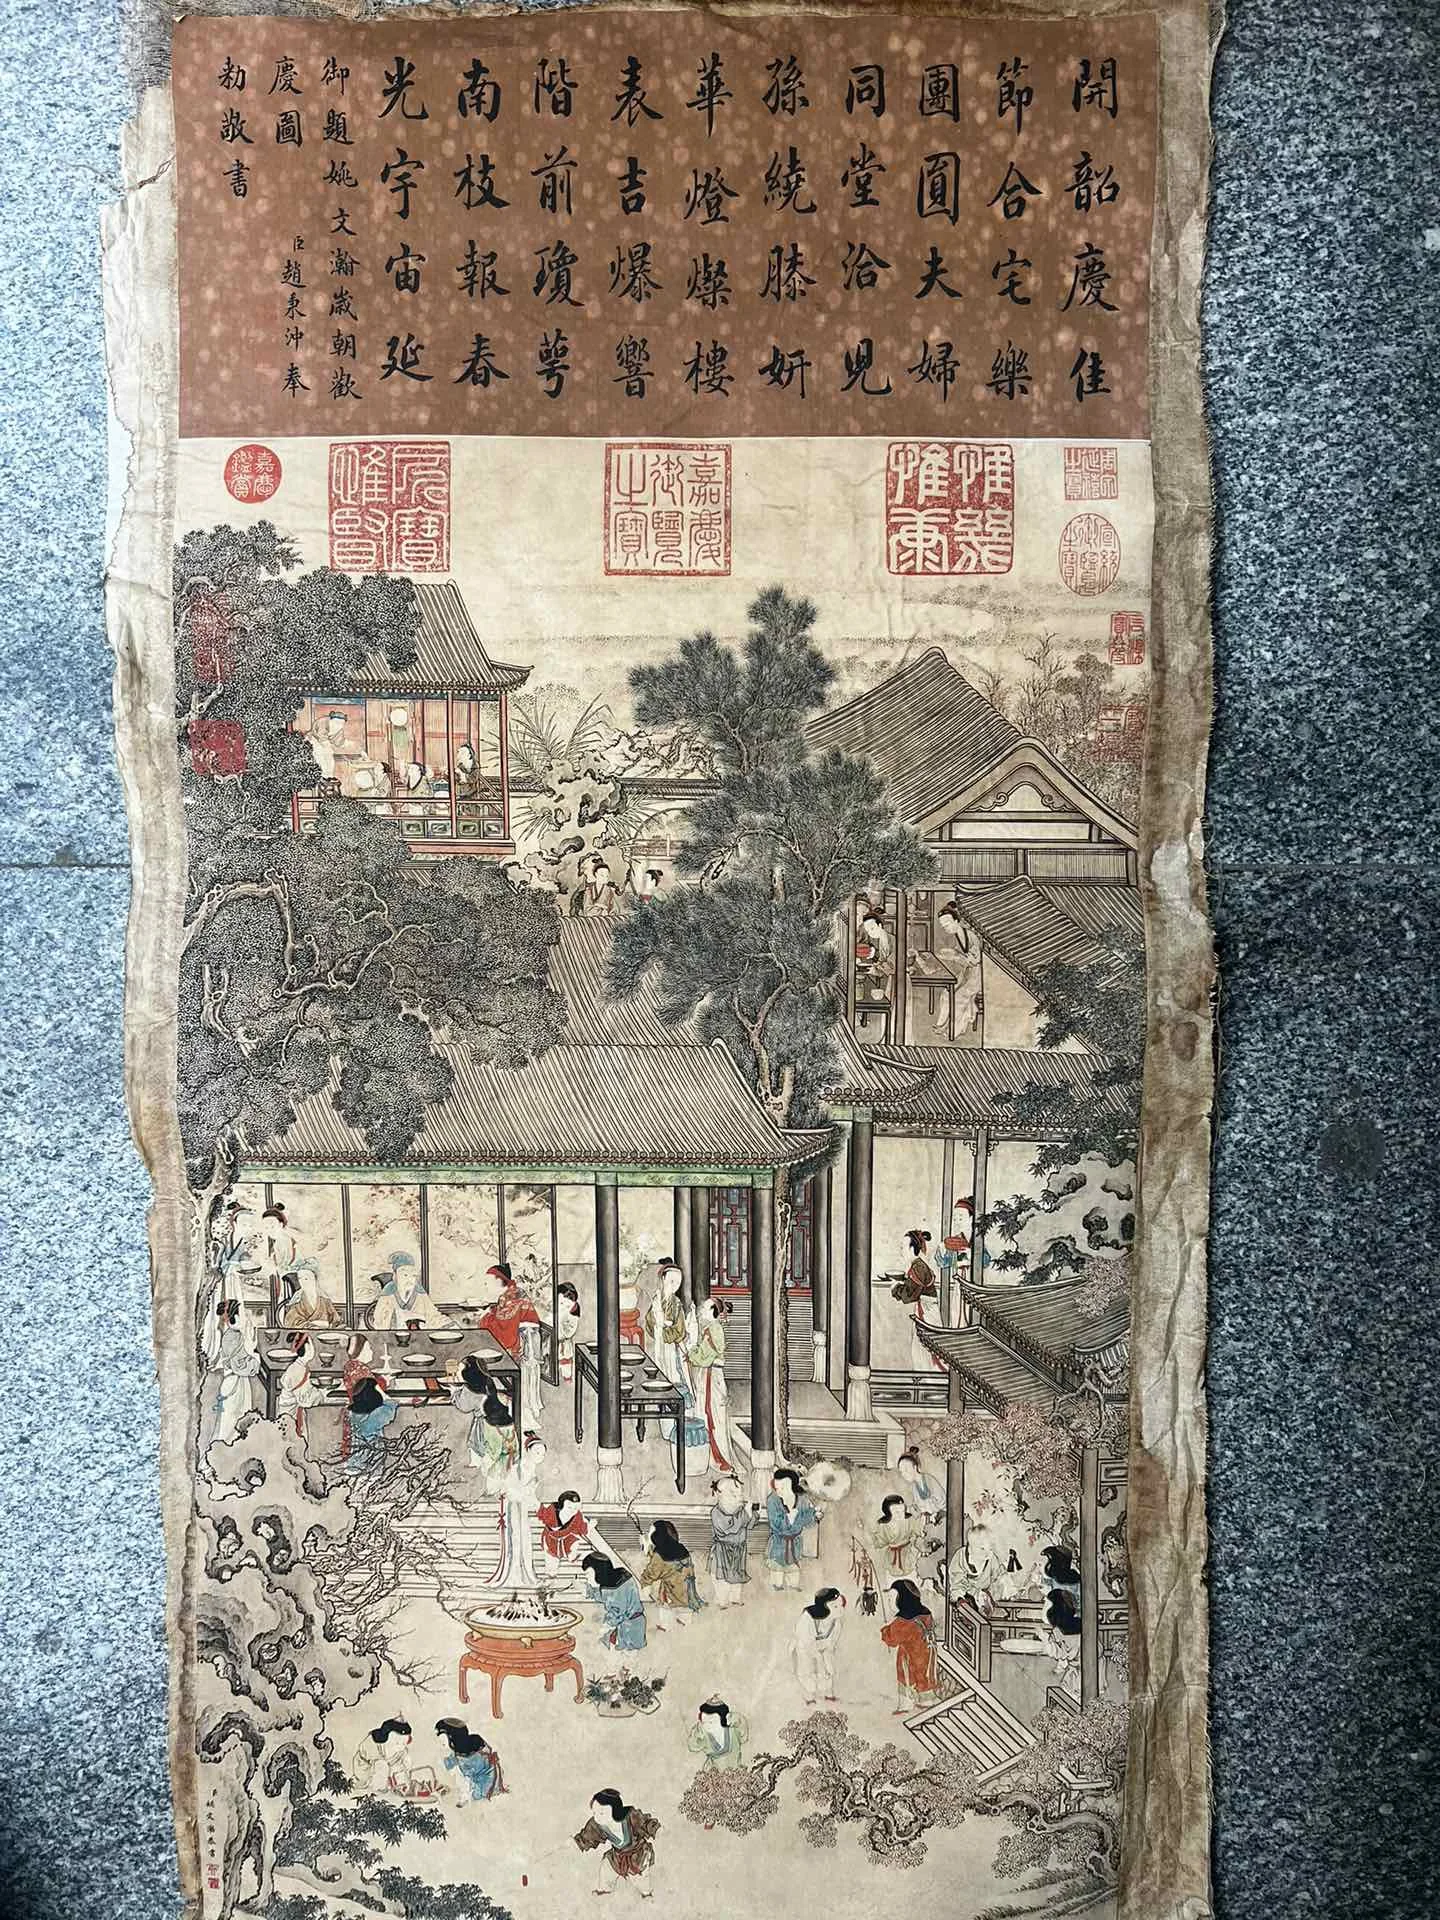 開韶慶佳
節合宅樂
團圓夫婦
同堂洽兒
孫繞膝妍
華燈燦樓
表吉爆響
階前瓊萼
南枝報春
光宇宙延
御題姚文瀚歲朝歡
慶圖
臣趙秉沖奉
勅敬書
嘉慶御覽之寶
嘉慶鑑賞
宣統御覽之寶